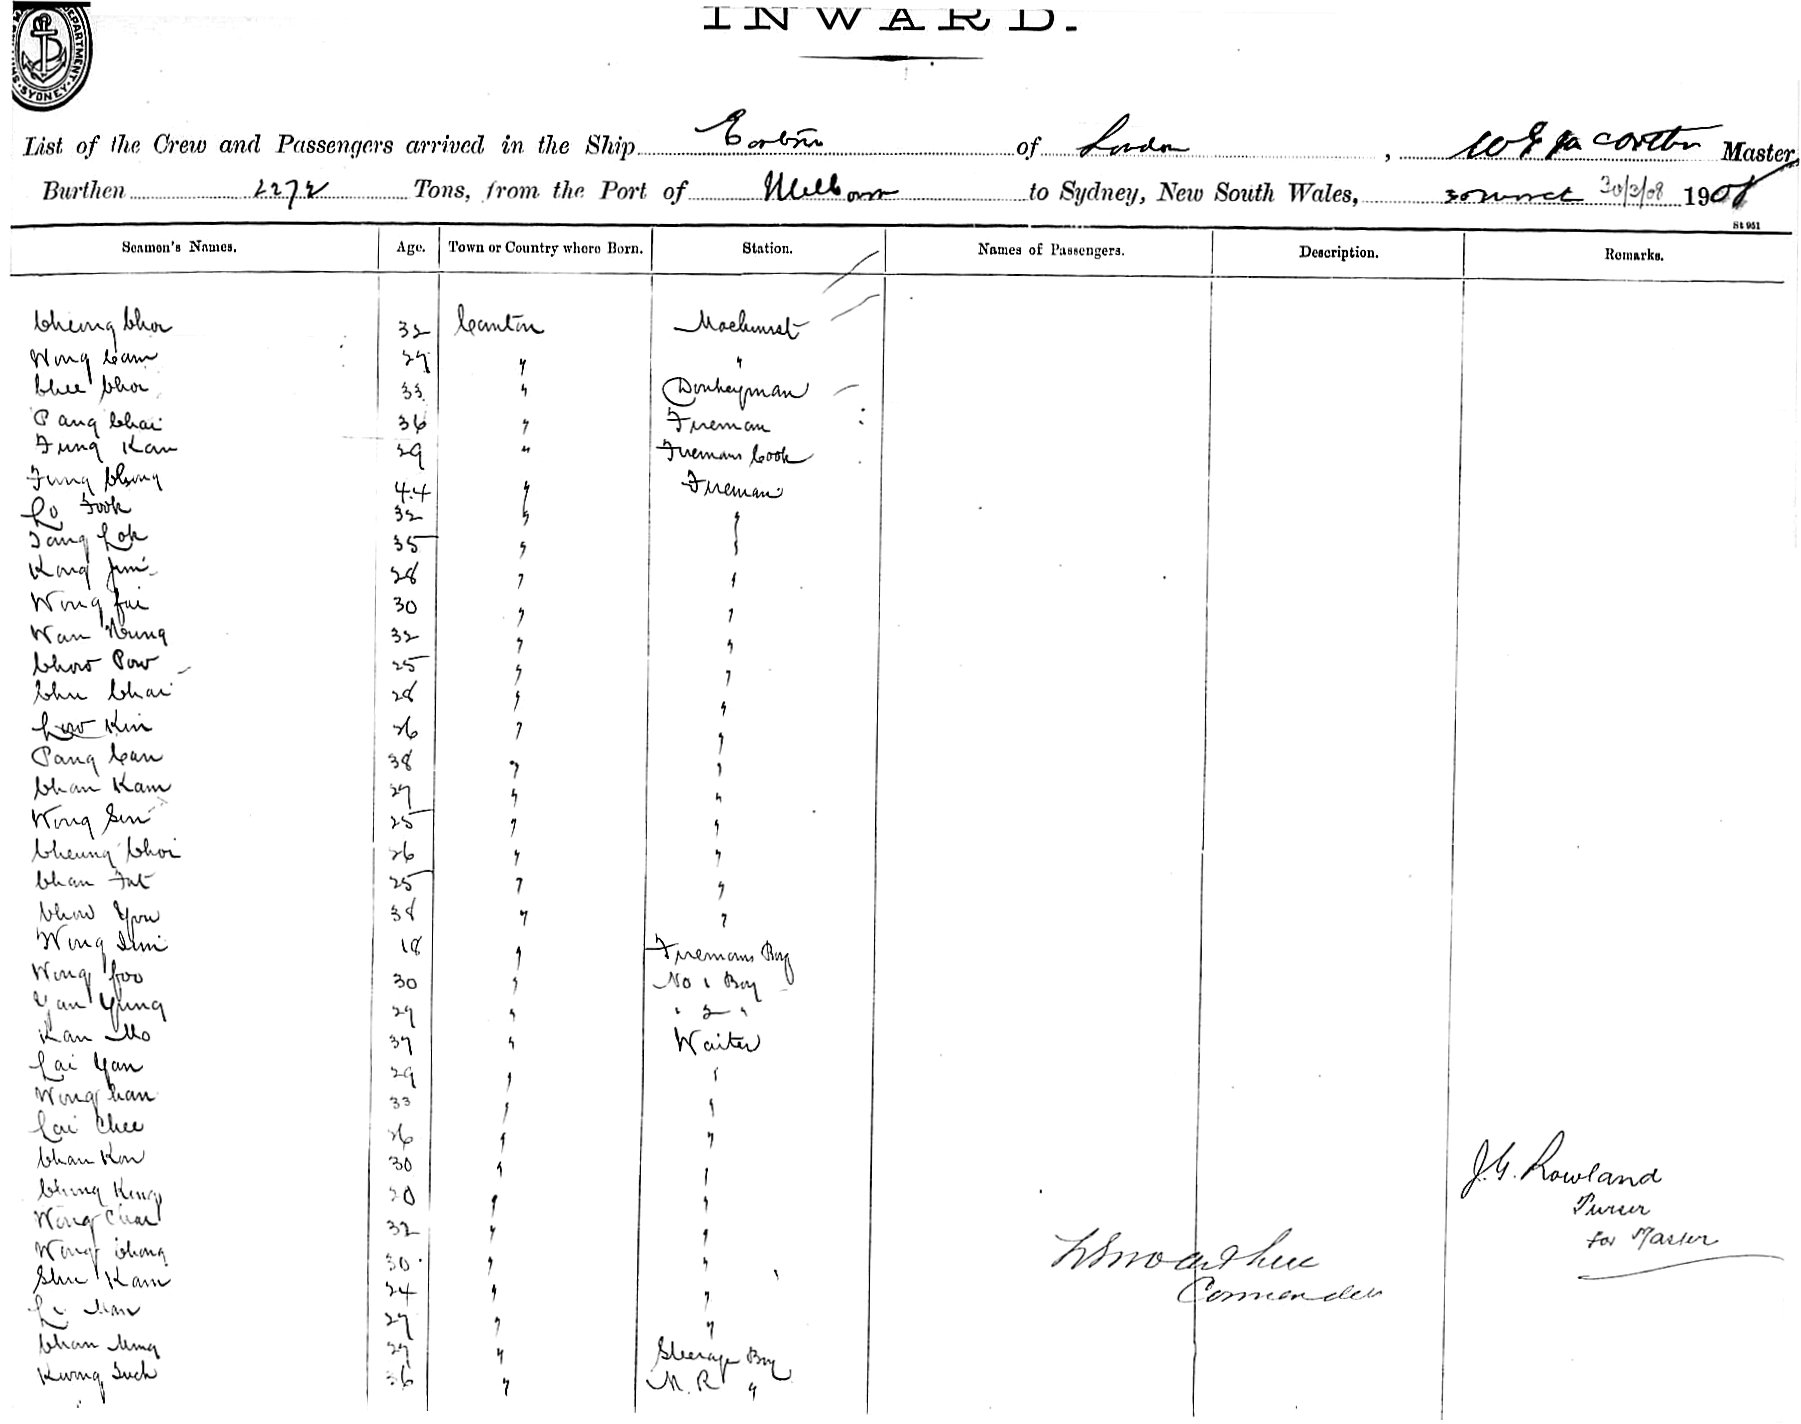 INWARD.
DEPARTMENT. SYDNEY.
List of the Crew and Passengers arrived in the Ship of London, Master
Burthen 2272 Tons, from the Port of Melbourne to Sydney, New South Wales, 30 March 30/3/08 1908
St 951
Seamen's Names. Age. Town or Country where Born. Station. Names of Passengers. Description. Remarks.
Cheong Choi 32 Canton Machinist
Wong Cam 27 " "
Chee Choi 33 " Donkeyman
Pang Chai 36 " Fireman
Fung Kan 29 " Firemans Cook
Fung Chong 44 " Fireman
Lo Fook 32 " "
Tang Lok 35 " "
Kong Jim 28 " "
Wong Fai 30 " "
Wan 32 " "
Chow Pow 25 " "
Chu Chai 28 " "
Low Kin 26 " "
Pang Can 38 " "
Chan Kam 27 " "
Wong Sin 25 " "
Cheung Choi 26 " "
Chan Fat 25 " "
Chow You 38 " "
Wong 18 " Firemans Boy
Wong Foo 30 " No 1 Boy
Yan Yung 29 " " 2 "
Kan Mo 37 " Waiter
Lai Yan 29 " "
Wong Can 33 " "
Lai Chee 26 " "
Chan Kon 30 " "
Chung King 20 " "
Wong Chai 32 " "
Wong Chong 30 " "
Shu Kam 24 " "
27 " "
Chan Ming 27 " Steerage Boy
Kwong 36 " M. R "
J. G. Rowland
Purser
for Master
Commander